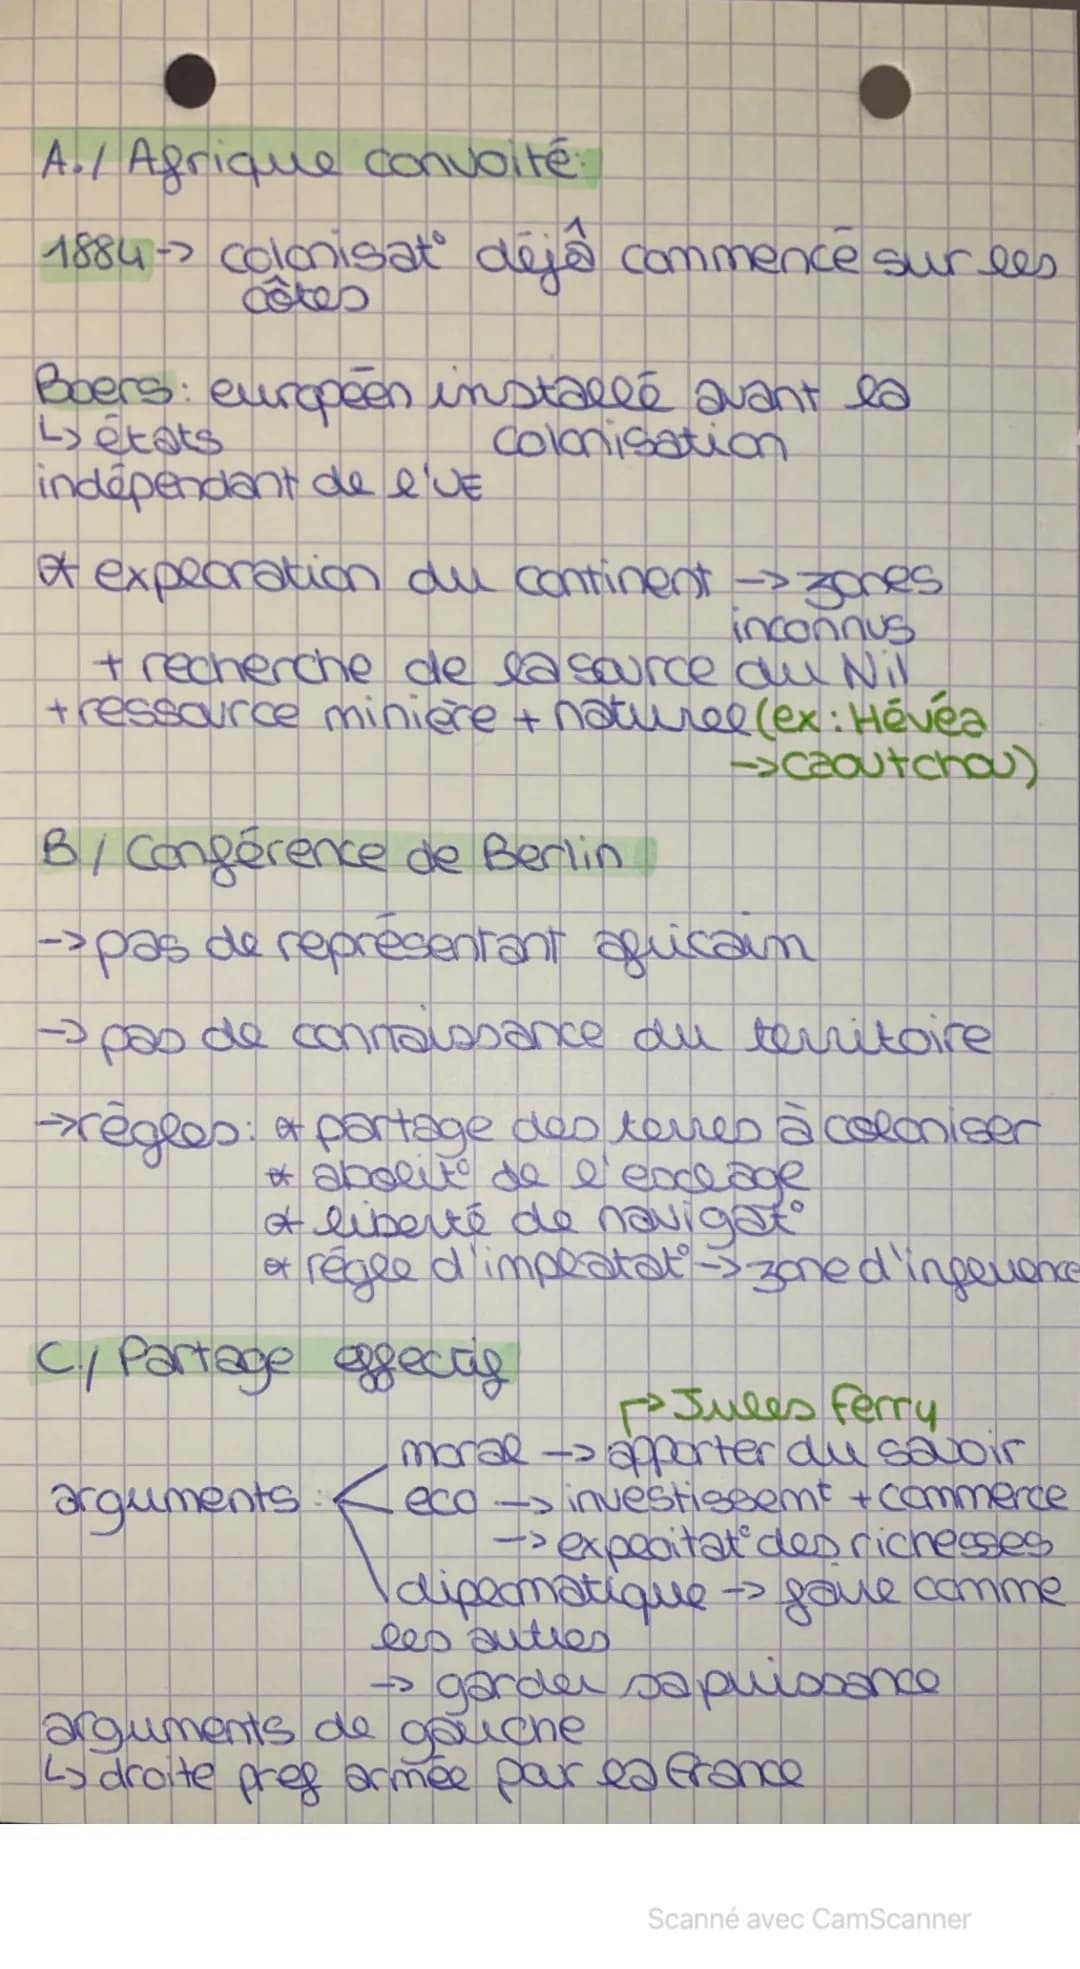 A./ Afrique convoité:
1884 -> colonisat° déjà commencé sur les
côtes
Boers: européen installé avant la
↳ états colonisation
indépendant de l'UE
* exploration du continent -> zones
inconnus
+ recherche de la source du Nil
+ ressource minière + naturel (ex: Hévéa
-> caoutchou)
B / Conférence de Berlin
-> pas de représentant africain
-> pas de connaissance du territoire
-> règles: * partage des terres à coloniser
* abolit° de l'esclage
* liberté de navigat°
* régle d'implatat° -> zone d'infeuence
C./ Partage effectif
↱ Jules Ferry
moral -> apporter du savoir
arguments: eco -> investissemt + commerce
-> exploitat° des richesses
diplomatique -> faire comme
les autres
-> garder sa puissance
arguments de gauche
↳ droite pref armée par la France
Scanné avec CamScanner